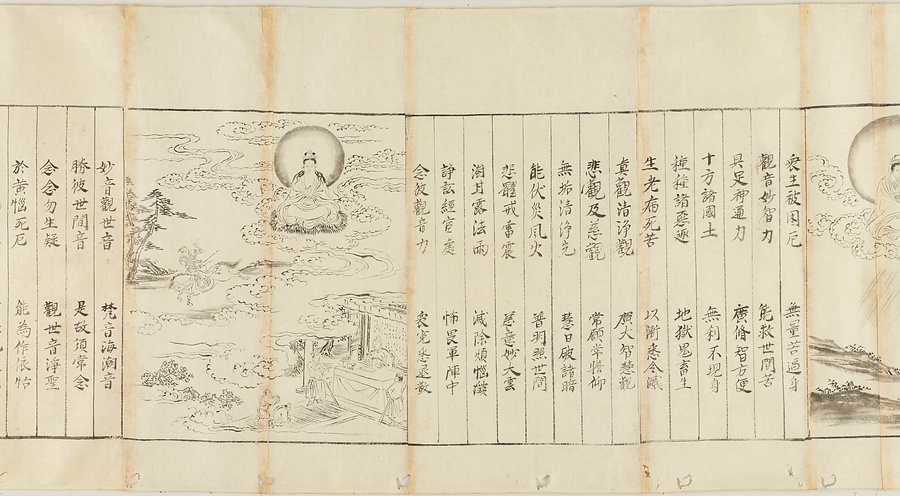 衆生被困厄 無量苦逼身
觀音妙智力 能救世間苦
具足神通力 廣脩智方便
十方諸國土 無刹不現身
種種諸惡趣 地獄鬼畜生
生老病死苦 以漸悉令滅
真觀清淨觀 廣大智慧觀
悲觀及慈觀 常願常瞻仰
無垢清淨光 慧日破諸暗
能伏災風火 普明照世間
悲體戒雷震 慈意妙大雲
澍甘露法雨 滅除煩惱燄
諍訟經官處 怖畏軍陣中
念彼觀音力 衆怨悉退散
妙音觀世音 梵音海潮音
勝彼世間音 是故須常念
念念勿生疑 觀世音淨聖
於苦惱死厄 能為作依怙